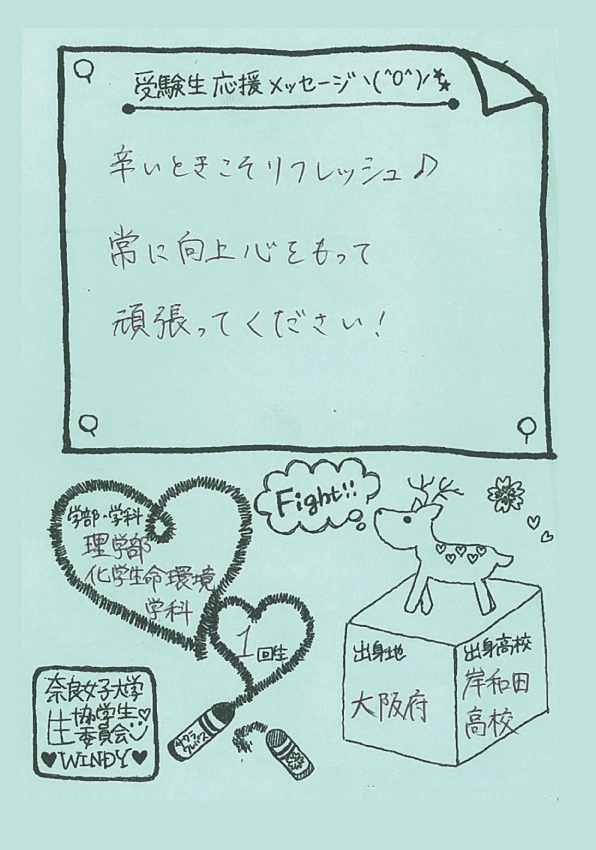 受験生応援メッセージヽ(^0^)ﾉ
辛いときこそリフレッシュ♪
常に向上心をもって
頑張ってください！
Fight!!
学部・学科
理学部
化学生命環境
学科
1回生
出身地
大阪府
出身高校
岸和田
高校
奈良女子大学
生協学生
委員会
♥WINDY♥
サクラ
クレパス